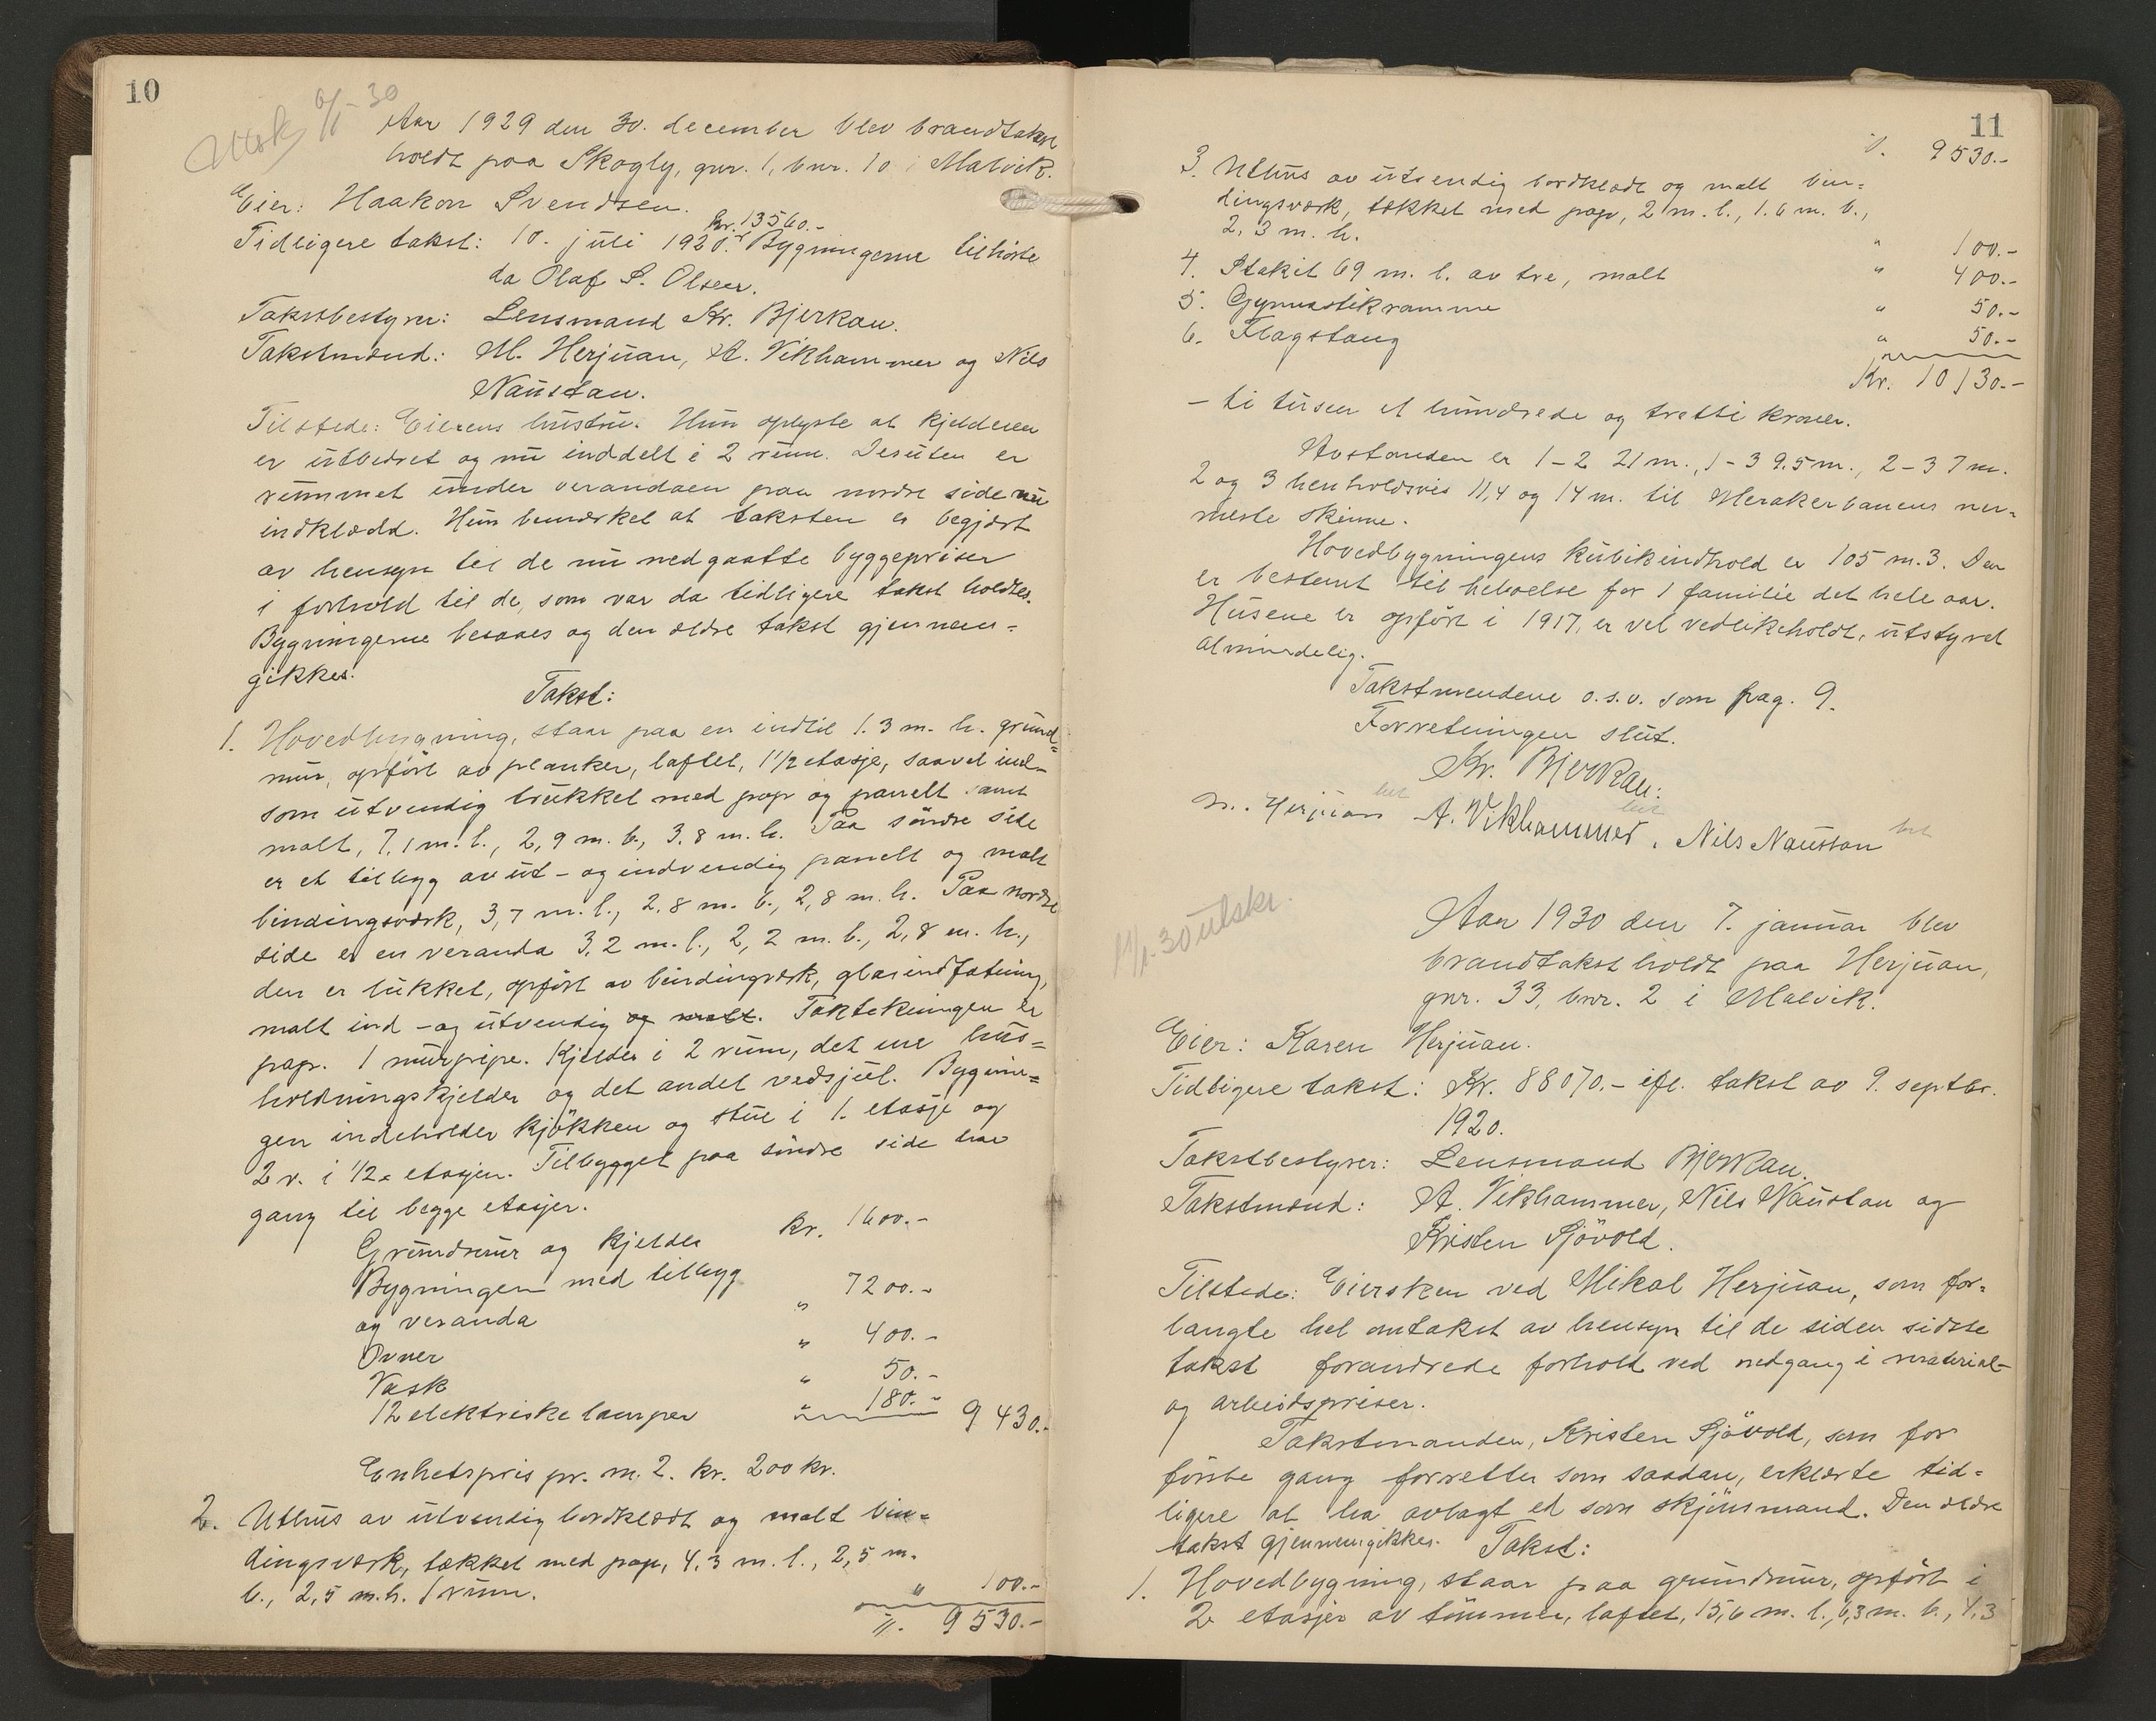 10
Utsk 6/1-30
Aar 1929 den 30. december blev brandtakst
holdt paa Skogly, gnr. 1, bnr. 10 i Malvik.
Eier: Haakon Svendsen.
Kr. 13560.-
Tidligere takst: 10. juli 1920. Bygningerne tilhörte
da Olaf S. Olsen.
Takstbestyrer: Lensmand Kr. Bjerkan.
Takstmænd: M. Herjuan, A. Vikhammer og Nils
Naustan.
Tilstede: Eierens hustru. Hun oplyste at kjelderen
er utbedret og nu inddelt i 2 rum. Desuten er
rummet under verandaen paa nordre side nu
indklædd. Hun bemerket at taksten er begjært
av hensyn til de nu nedgaatte byggepriser
i forhold til de, som var da tidligere takst holdtes.
Bygningerne besaaes og den ældre takst gjennem=
gikkes.
Takst:
1. Hovedbygning, staar paa en indtil 1.3 m. h. grund=
mur, opfört av planker, laftet, 1 1/2 etasje, saavel ind-
som utvendig trukket med pap og panelt samt
malt, 7,1 m. l., 2,9 m. b., 3,8 m. h. Paa söndre side
er et tilbygg av ut- og indvendig panelt og malt
bindingsverk, 3,7 m. l., 2,8 m. b., 2,8 m. h. Paa nordre
side er en veranda 3,2 m. l., 2,2 m. b., 2,8 m. h.,
den er lukket, opfört av bindingverk, glasindfatning,
malt ind- og utvendig og malt. Taktekningen er
pap. 1 murpipe. Kjelder i 2 rum, det ene hus=
holdningskjelder og det andet vedsjul. Bygnin=
gen indeholder kjökken og stue i 1. etasje og
2 v. i 1/2. etasjen. Tilbygget paa söndre side har
gang til begge etasjer.
Grundmur og kjelder kr. 1600.-
Bygningen med tilbygg
og veranda " 7200.-
Ovner " 400.-
Vask " 50.-
12 elektriske lamper " 180.- 9430.-
Enhetspris pr. m. 2. kr. 200 kr.
2. Uthus av utvendig bordklædt og malt bin=
dingsverk, tækket med pap, 4,3 m. l., 2,5 m.
b., 2,5 m. h. 1 rum. " 100.-
9530.-
11
9530.-
3. Uthus av utvendig bordklædt og malt bin=
dingsverk, tækket med pap, 2 m. l., 1.6 m. b.,
2,3 m. h. " 100.-
4. Stakit 69 m. l. av tre, malt " 400.-
5. Gymnastikramme " 50.-
6. Flagstang " 50.-
Kr. 10130.-
- ti tusen et hundrede og tretti kroner.
Avstanden er 1-2 21 m., 1-3 9.5 m., 2-3 7 m.
2 og 3 henholdsvis 11,4 og 14 m. til Merakerbanens nær=
meste skinne.
Hovedbygningens kubikindhold er 105 m.3. Den
er bestemt til beboelse for 1 familie det hele aar.
Husene er opfört i 1917, er vel vedlikeholdt, utstyret
almindelig.
Takstmendene o.s.v. som pag. 9.
Forretningen slut.
Kr. Bjerkan.
M. Herjuan A. Vikhammer. Nils Naustan
11/1-30 utskr.
Aar 1930 den 7. januar blev
brandtakst holdt paa Herjuan,
gnr. 33, bnr. 2 i Malvik.
Eier: Karen Herjuan.
Tidligere takst: Kr. 88070.- ifl. takst av 9. septbr.
1920.
Takstbestyrer: Lensmand Bjerkan.
Takstmænd: A. Vikhammer, Nils Naustan og
Kristen Sjövold.
Tilstede: Eiersken ved Mikal Herjuan, som for=
langte hel omtakst av hensyn til de siden sidste
takst forandrede forhold ved nedgang i material-
og arbeidspriser.
Takstmanden, Kristen Sjövold, som for
förste gang forretter som saadan, erklærte tid=
ligere at ha avlagt ed som skjönsmand. Den ældre
takst gjennemgikkes. Takst:
1. Hovedbygning, staar paa grundmur, opfört i
2 etasjer av tömmer, laftet, 15,6 m. l., 6,3 m. b., 4,3